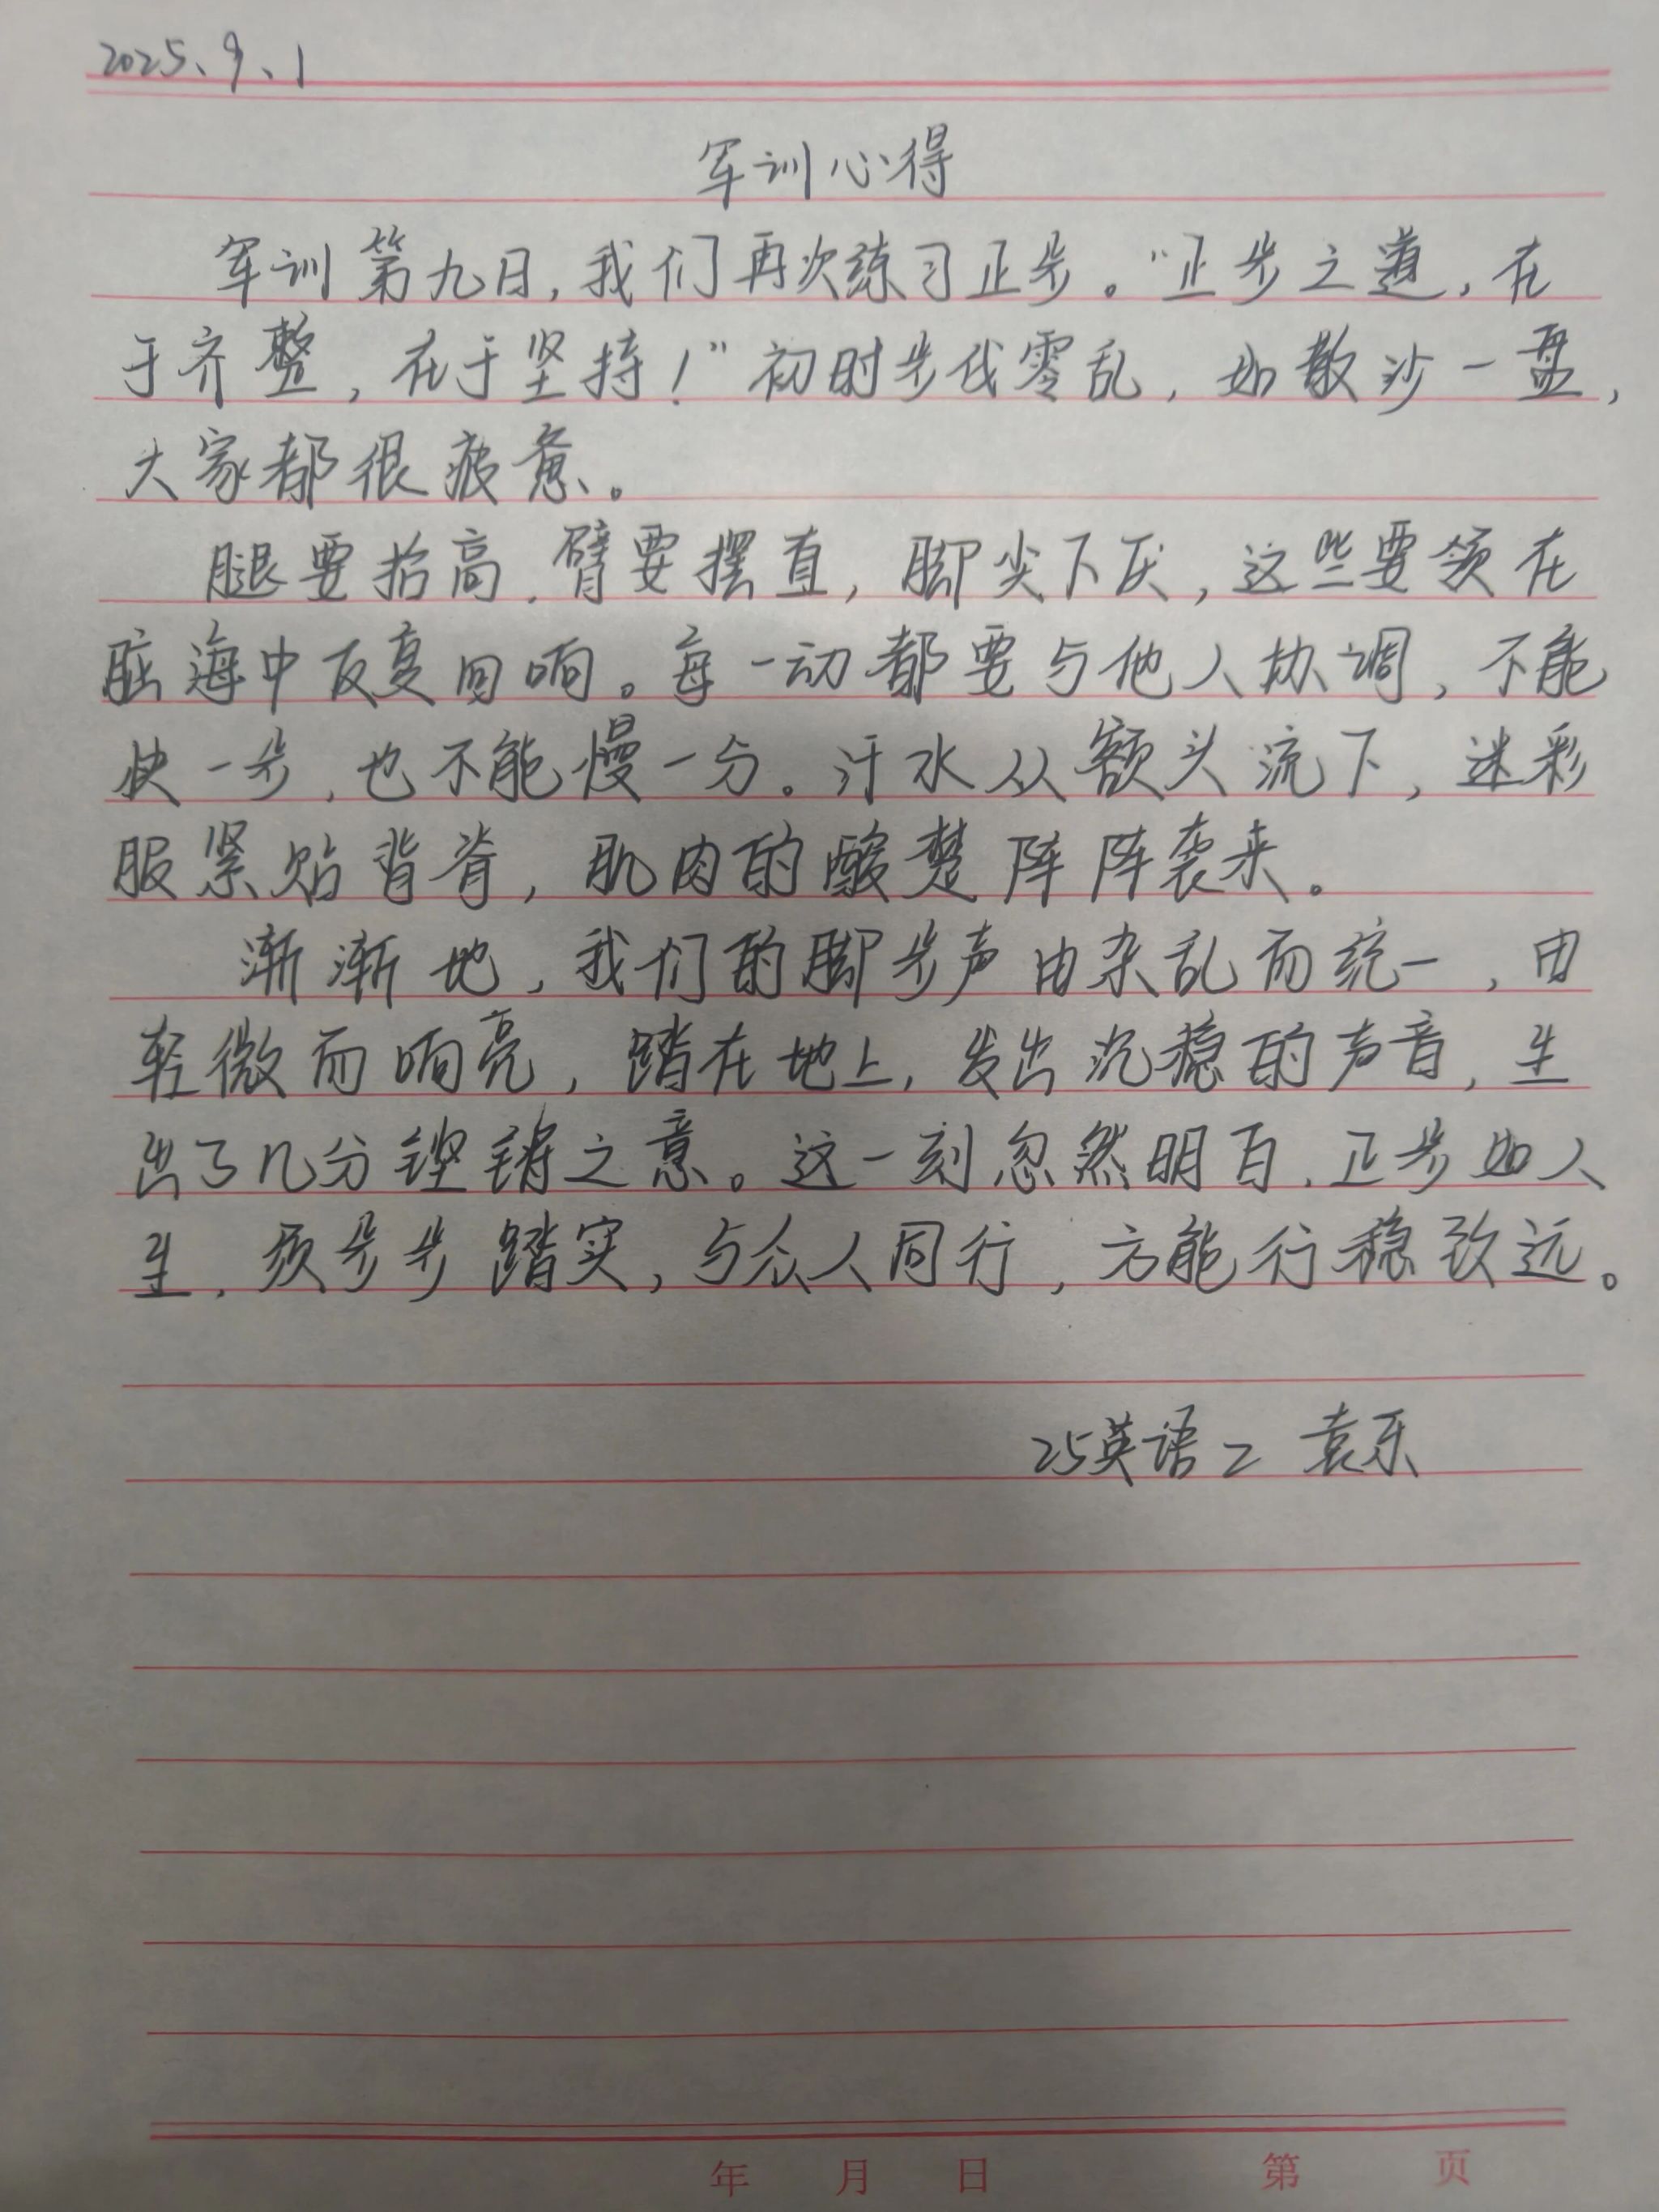 2025、9、1
军训心得
军训第九日，我们再次练习正步。“正步之道，在
于齐整，在于坚持！”初时步伐零乱，如散沙一盘，
大家都很疲惫。
腿要抬高，臂要摆直，脚尖下压，这些要领在
脑海中反复回响。每一动都要与他人协调，不能
快一步，也不能慢一分。汗水从额头流下，迷彩
服紧贴背脊，肌肉的酸楚阵阵袭来。
渐渐地，我们的脚步声由杂乱而统一，由
轻微而响亮，踏在地上，发出沉稳的声音，生
出了几分铿锵之意。这一刻忽然明白，正步如人
生，须步步踏实，与众人同行，方能行稳致远。
25英语2 袁乐
年 月 日 第 页